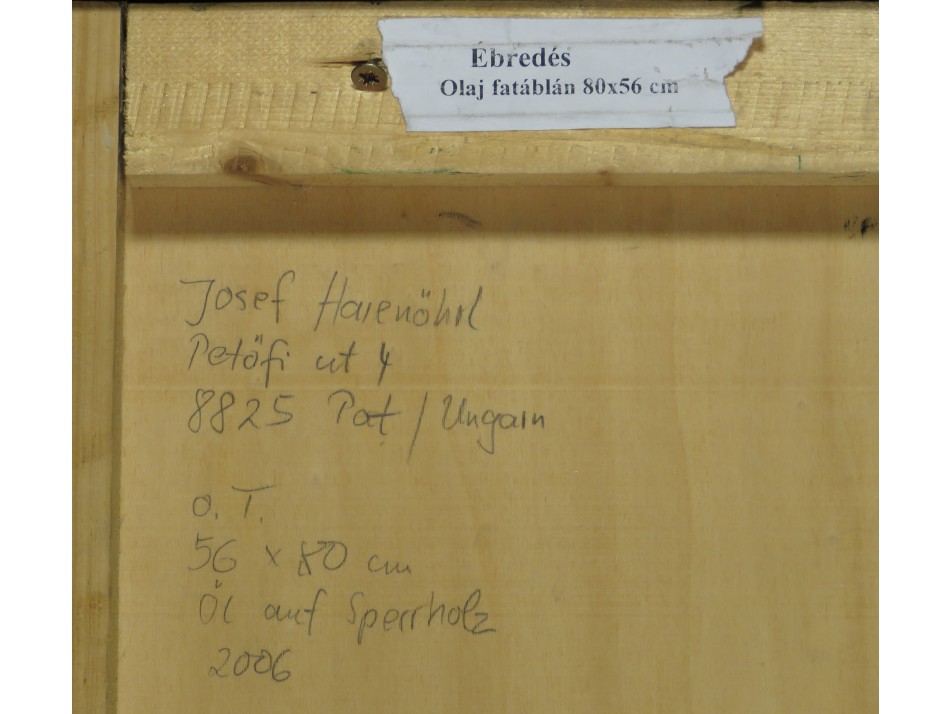 Ébredés
Olaj fatáblán 80x56 cm
Josef
Petőfi ut 4
8825 Pat / Ungarn
O. T.
56 x 80 cm
Öl auf Sperrholz
2006